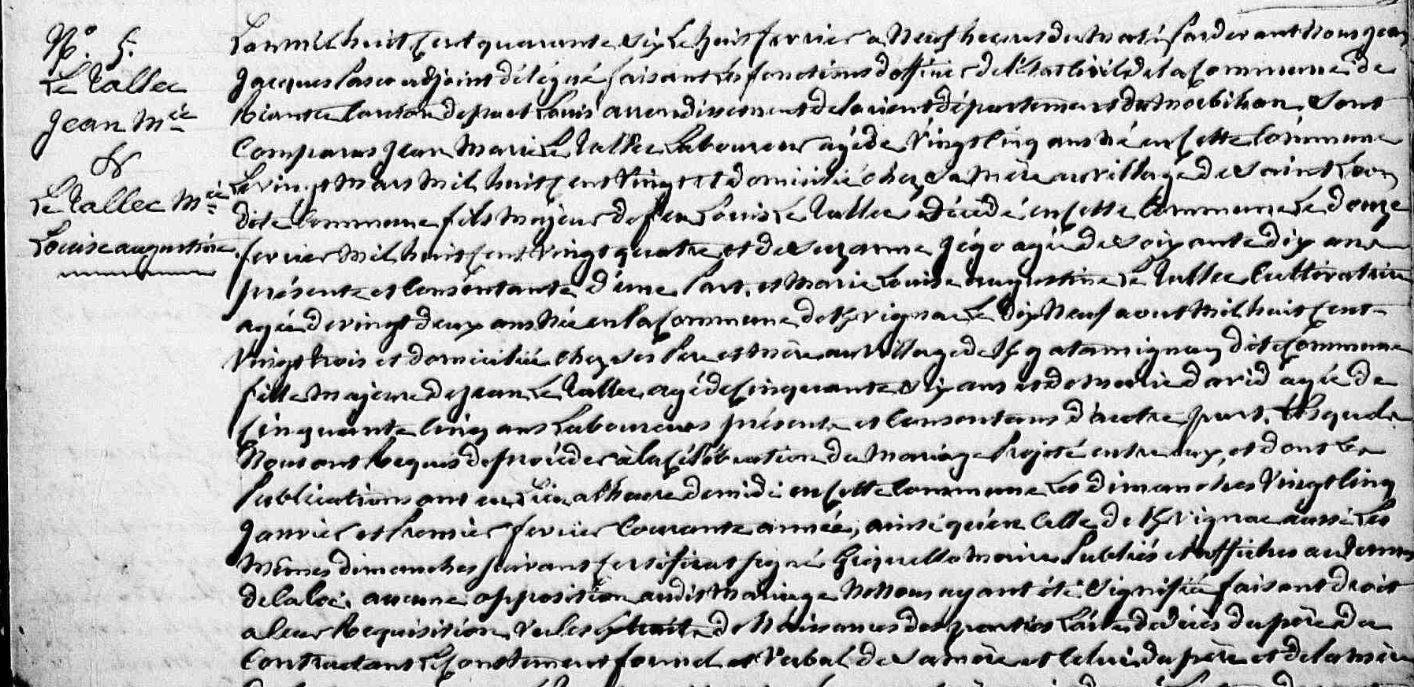 N°. 5.
Le Tallec
Jean Mie
&
Le Tallec Mie
Louise augustine
L'an mil huit cent quarante six Le huit fevrier a Neuf heures du Matin Pardevant Nous Jean
Jacques adjoint délégué faisant les fonctions d'officier de l'Etat Civil de la Commune de
Riantec Canton de port Louis arrondissement de Lorient département du Morbihan, Sont
Comparus Jean Marie Le Tallec Laboureur agé de Vingt Cinq ans né en Cette Commune
Le vingt Mars Mil huit Cent Vingt et domicilié chez Sa Mère au village de Saint Léon
dite Commune fils Majeur de feu Louis Le Tallec décédé en Cette Commune Le douze
fevrier Mil huit Cent Vingt quatre et de Suzanne Jégo agée de Soixante dix ans
présente et Consentante d'une Part, et Marie Louise augustine Le Tallec Cultivatrice
agée de vingt deux ans Née en la Commune de Kvignac Le dix Neuf aout Mil huit Cent
Vingt trois et domiciliée chez Ses Père et Mère au village de dite Commune
fille Majeure de Jean Le Tallec agé de Cinquante Six ans et de Marie david agée de
Cinquante Cinq ans Laboureurs présents et Consentans d'autre part. Lesquels
Nous ont Requis de procéder à la Célébration du Mariage Projeté entre eux, et dont les
Publications ont eu Lieu a l'heure de midi en Cette Commune Les dimanches Vingt Cinq
Janvier et Premier fevrier Courante année, ainsi qu'en Celle de Kvignac aussi Les
Mêmes dimanches Suivant Certificat signé Maire Publiés et affichés au
de la Loi. aucune opposition audit Mariage Ne Nous ayant été Signifiée faisant droit
a leur Requisition, Vu les Extraits de Naissances des parties L'acte de décès du père du
Contractant Le Consentement formel et Verbal de Sa mère et Celui du père et de la mère